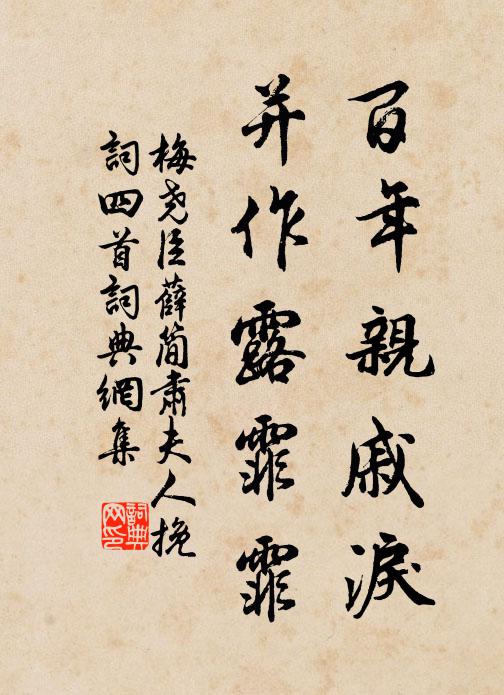 百年親戚淚
并作露霏霏
梅堯臣薛簡肅夫人挽
詞四首詞典網集
詞典
网印